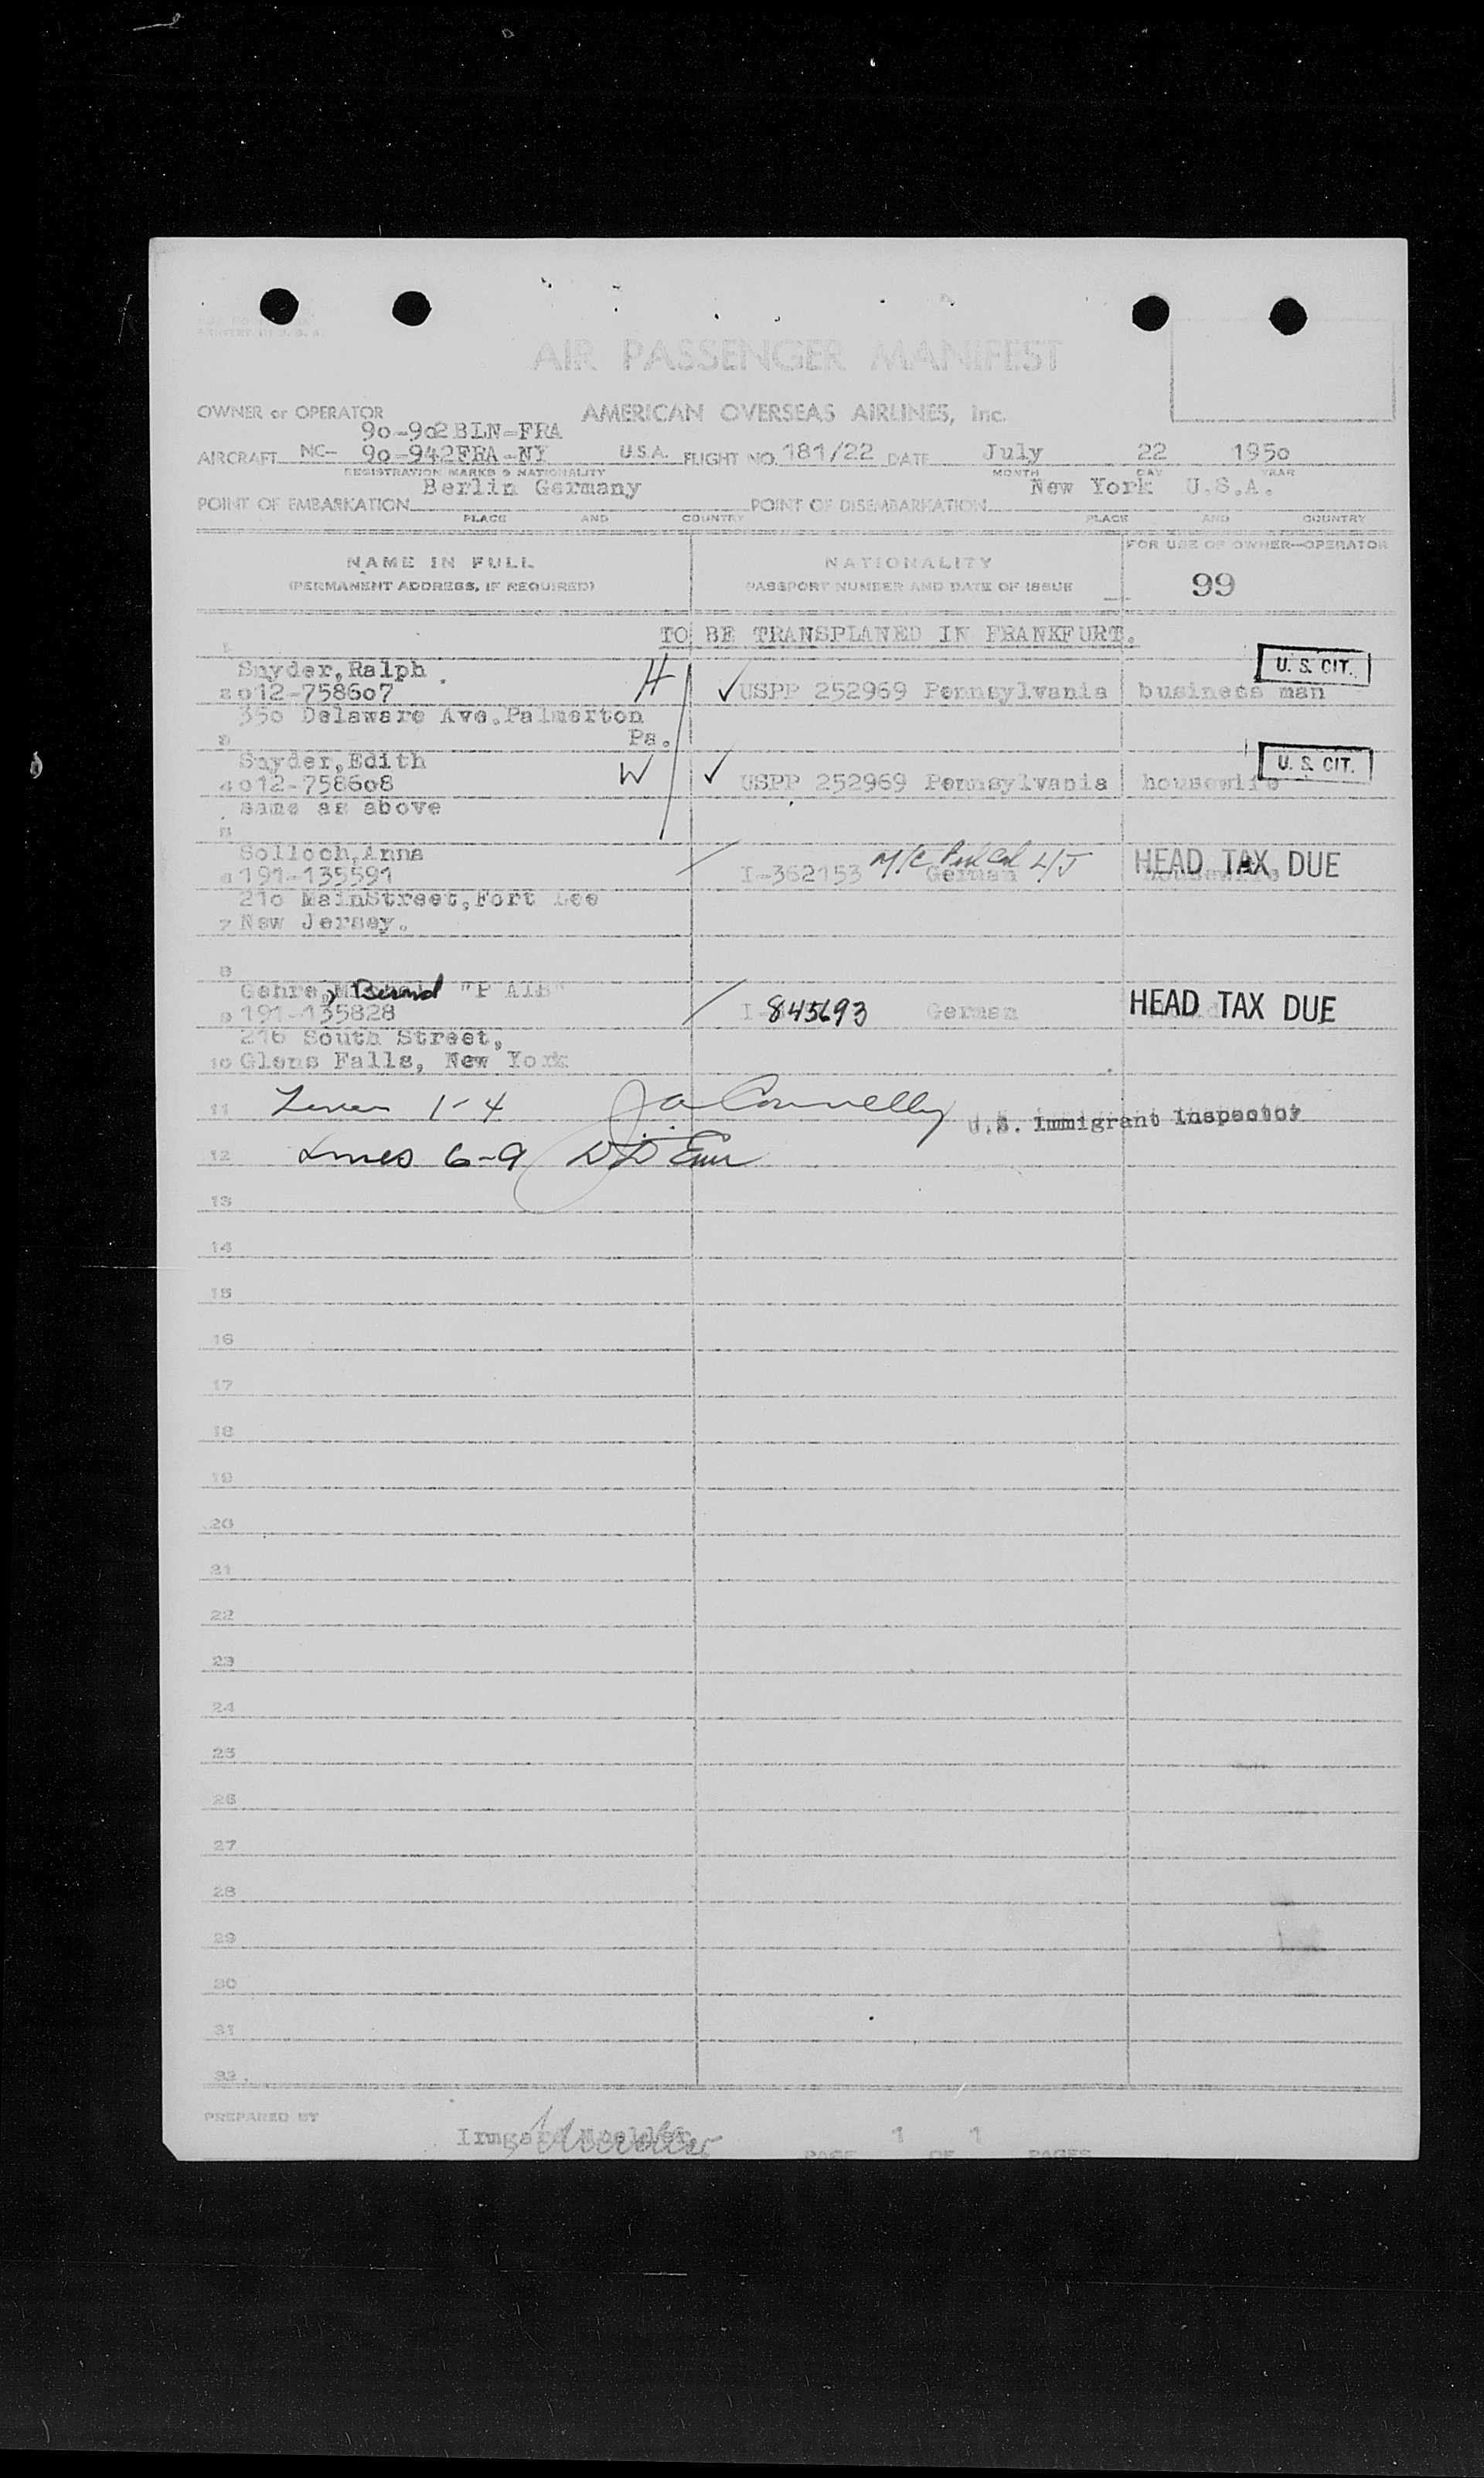 AIR PASSENGER MANIFEST
OWNER or OPERATOR AMERICAN OVERSEAS AIRLINES, Inc.
90-902BLN-FRA
AIRCRAFT NC- 90-942FRA-NY U.S.A. FLIGHT NO. 181/22 DATE July 22 1950
REGISTRATION MARKS & NATIONALITY MONTH DAY YEAR
Berlin Germany New York U.S.A.
POINT OF EMBARKATION POINT OF DISEMBARKATION
PLACE AND COUNTRY PLACE AND COUNTRY
NAME IN FULL NATIONALITY FOR USE OF OWNER—OPERATOR
(PERMANENT ADDRESS, IF REQUIRED) PASSPORT NUMBER AND DATE OF ISSUE 99
1 TO BE TRANSPLANED IN FRANKFURT.
Snyder,Ralph H U. S. CIT.
2 012-758607 ✓ USPP 252969 Pennsylvania business man
350 Delaware Ave.Palmerton
3 Pa.
Snyder,Edith W U. S. CIT.
4 012-758608 ✓ USPP 252969 Pennsylvania housewife
same as above
5
Solloch,Anna M/C L/J HEAD TAX DUE
6 191-135591 I-362153 German housewife
210 MainStreet,Fort Lee
7 New Jersey.
8
Bernd HEAD TAX DUE
9 191-135828 I-845693 German
216 South Street,
10 Glens Falls, New York
11 Lines 1-4 J a Connelly U.S. Immigrant Inspector
12 Lines 6-9
13
14
15
16
17
18
19
20
21
22
23
24
25
26
27
28
29
30
31
32
PREPARED BY
1 1
PAGE OF PAGES